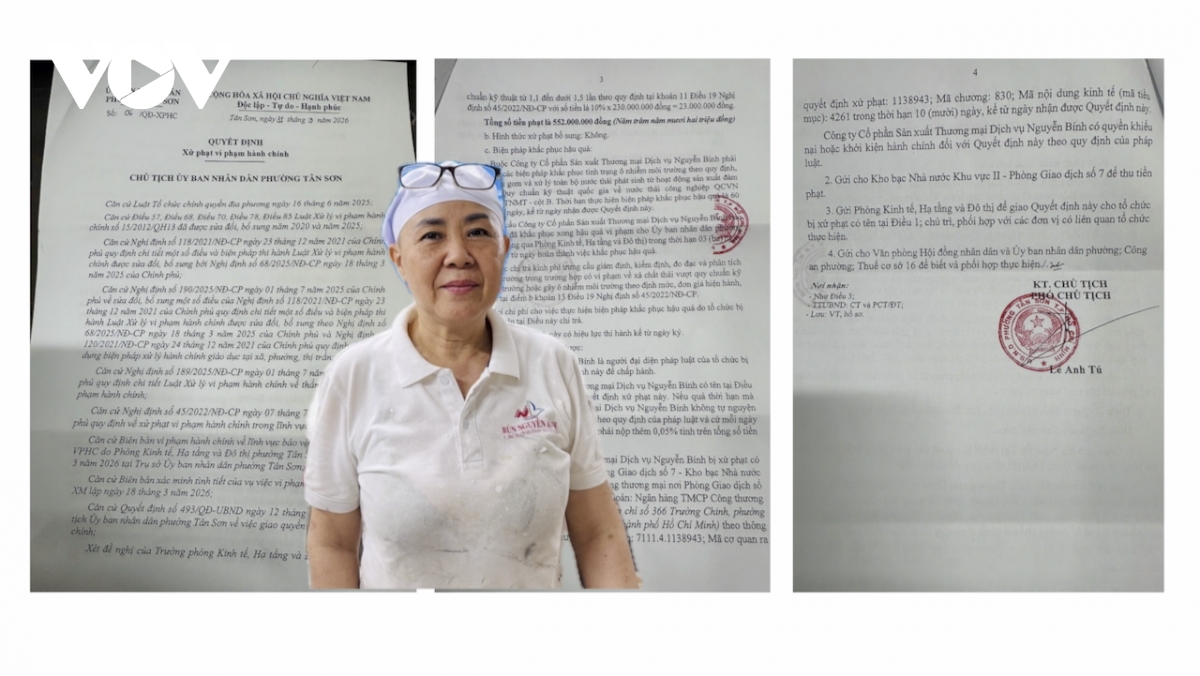 VOV
CỘNG HÒA XÃ HỘI CHỦ NGHĨA VIỆT NAM
Độc lập - Tự do - Hạnh phúc
Số: 06 /QĐ-XPHC
Tân Sơn, ngày 31 tháng 3 năm 2026
QUYẾT ĐỊNH
Xử phạt vi phạm hành chính
CHỦ TỊCH ỦY BAN NHÂN DÂN PHƯỜNG TÂN SƠN
Căn cứ Luật Tổ chức chính quyền địa phương ngày 16 tháng 6 năm 2025;
Căn cứ Điều 57, Điều 68, Điều 70, Điều 78, Điều 85 Luật Xử lý vi phạm hành
chính số 15/2012/QH13 đã được sửa đổi, bổ sung năm 2020 và năm 2025;
Căn cứ Nghị định số 118/2021/NĐ-CP ngày 23 tháng 12 năm 2021 của Chính
phủ quy định chi tiết một số điều và biện pháp thi hành Luật Xử lý vi phạm hành
chính được sửa đổi, bổ sung bởi Nghị định số 68/2025/NĐ-CP ngày 18 tháng 3
năm 2025 của Chính phủ;
Căn cứ Nghị định số 190/2025/NĐ-CP ngày 01 tháng 7 năm 2025 của Chính
phủ về sửa đổi, bổ sung một số điều của Nghị định số 118/2021/NĐ-CP ngày 23
tháng 12 năm 2021 của Chính phủ quy định chi tiết một số điều và biện pháp thi
hành Luật Xử lý vi phạm hành chính được sửa đổi, bổ sung theo Nghị định số
68/2025/NĐ-CP ngày 18 tháng 3 năm 2025 của Chính phủ và Nghị định
120/2021/NĐ-CP ngày 24 tháng 12 năm 2021 của Chính phủ quy định
dụng biện pháp xử lý hành chính giáo dục tại xã, phường, thị trấn
Căn cứ Nghị định số 189/2025/NĐ-CP ngày 01 tháng 7 năm
phủ quy định chi tiết Luật Xử lý vi phạm hành chính về thẩm
phạm hành chính;
Căn cứ Nghị định số 45/2022/NĐ-CP ngày 07 tháng 7
phủ quy định về xử phạt vi phạm hành chính trong lĩnh vực
Căn cứ Biên bản vi phạm hành chính về lĩnh vực bảo vệ
VPHC do Phòng Kinh tế, Hạ tầng và Đô thị phường Tân Sơn
3 năm 2026 tại Trụ sở Ủy ban nhân dân phường Tân Sơn;
Căn cứ Biên bản xác minh tình tiết của vụ việc vi phạm
XM lập ngày 18 tháng 3 năm 2026;
Căn cứ Quyết định số 493/QĐ-UBND ngày 12 tháng
tịch Ủy ban nhân dân phường Tân Sơn về việc giao quyền
chính;
Xét đề nghị của Trưởng phòng Kinh tế, Hạ tầng và
3
chuẩn kỹ thuật từ 1,1 đến dưới 1,5 lần theo quy định tại khoản 11 Điều 19 Nghị
định số 45/2022/NĐ-CP với số tiền là 10% x 230.000.000 đồng = 23.000.000 đồng.
Tổng số tiền phạt là 552.000.000 đồng (Năm trăm năm mươi hai triệu đồng)
b. Hình thức xử phạt bổ sung: Không.
c. Biện pháp khắc phục hậu quả:
Buộc Công ty Cổ phần Sản xuất Thương mại Dịch vụ Nguyễn Bính phải
các biện pháp khắc phục tình trạng ô nhiễm môi trường theo quy định,
gom và xử lý toàn bộ nước thải phát sinh từ hoạt động sản xuất đảm
Quy chuẩn kỹ thuật quốc gia về nước thải công nghiệp QCVN
TNMT - cột B. Thời hạn thực hiện biện pháp khắc phục hậu quả là 60
ngày, kể từ ngày nhận được Quyết định này.
cầu Công ty Cổ phần Sản xuất Thương mại Dịch vụ Nguyễn Bính
đã khắc phục xong hậu quả vi phạm cho Ủy ban nhân dân phường
qua Phòng Kinh tế, Hạ tầng và Đô thị) trong thời hạn 03 (ba)
từ ngày hoàn thành việc khắc phục hậu quả.
chi trả kinh phí trưng cầu giám định, kiểm định, đo đạc và phân tích
trường trong trường hợp có vi phạm về xả chất thải vượt quy chuẩn kỹ
trường hoặc gây ô nhiễm môi trường theo định mức, đơn giá hiện hành,
tại điểm b khoản 13 Điều 19 Nghị định số 45/2022/NĐ-CP.
chi phí cho việc thực hiện biện pháp khắc phục hậu quả do tổ chức bị
tên tại Điều này chi trả.
này có hiệu lực thi hành kể từ ngày ký.
được:
Bính là người đại diện pháp luật của tổ chức bị
định này để chấp hành.
mại Dịch vụ Nguyễn Bính có tên tại Điều
định xử phạt này. Nếu quá thời hạn mà
Dịch vụ Nguyễn Bính không tự nguyện
theo quy định của pháp luật và cứ mỗi ngày
phải nộp thêm 0,05% tính trên tổng số tiền
mại Dịch vụ Nguyễn Bính bị xử phạt có
Giao dịch số 7 - Kho bạc Nhà nước
thương mại nơi Phòng Giao dịch số
Ngân hàng TMCP Công thương
chỉ số 366 Trường Chinh, phường
thành phố Hồ Chí Minh) theo thông
7111.4.1138943; Mã cơ quan ra
BÚN NGUYỄN BÍNH
4
quyết định xử phạt: 1138943; Mã chương: 830; Mã nội dung kinh tế (mã tiểu
mục): 4261 trong thời hạn 10 (mười) ngày, kể từ ngày nhận được Quyết định này.
Công ty Cổ phần Sản xuất Thương mại Dịch vụ Nguyễn Bính có quyền khiếu
nại hoặc khởi kiện hành chính đối với Quyết định này theo quy định của pháp
luật.
2. Gửi cho Kho bạc Nhà nước Khu vực II - Phòng Giao dịch số 7 để thu tiền
phạt.
3. Gửi Phòng Kinh tế, Hạ tầng và Đô thị để giao Quyết định này cho tổ chức
bị xử phạt có tên tại Điều 1; chủ trì, phối hợp với các đơn vị có liên quan tổ chức
thực hiện.
4. Gửi cho Văn phòng Hội đồng nhân dân và Ủy ban nhân dân phường; Công
an phường; Thuế cơ sở 16 để biết và phối hợp thực hiện./.
Nơi nhận:
- Như Điều 3;
- TTUBND: CT và PCT/ĐT;
- Lưu: VT, hồ sơ.
KT. CHỦ TỊCH
PHÓ CHỦ TỊCH
Lê Anh Tú